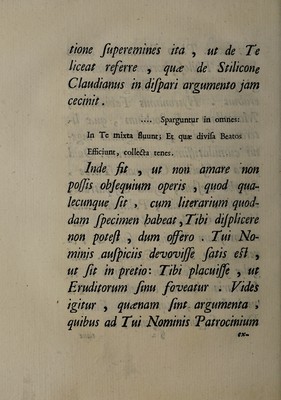 tione ſuperemines ita , ut de Te
liceat referre , quæ de Stilicone
Claudianus in diſpari argumento jam
cecinit .
.... Sparguntur in omnes:
In Te mixta fluunt; Et quæ diviſa Beatos
Efficiunt, collecta tenes.
Inde fit , ut non amare non
poſſis obſequium operis , quod qua-
lecunque ſit , cum literarium quod-
dam ſpecimen habeat , Tibi diſplicere
non poteſt , dum offero . Tui No-
minis auſpiciis devoviſſe ſatis eſt ,
ut ſit in pretio: Tibi placuiſſe , ut
Eruditorum ſinu foveatur . Vides
igitur , quænam ſint argumenta ,
quibus ad Tui Nominis Patrocinium
ex-